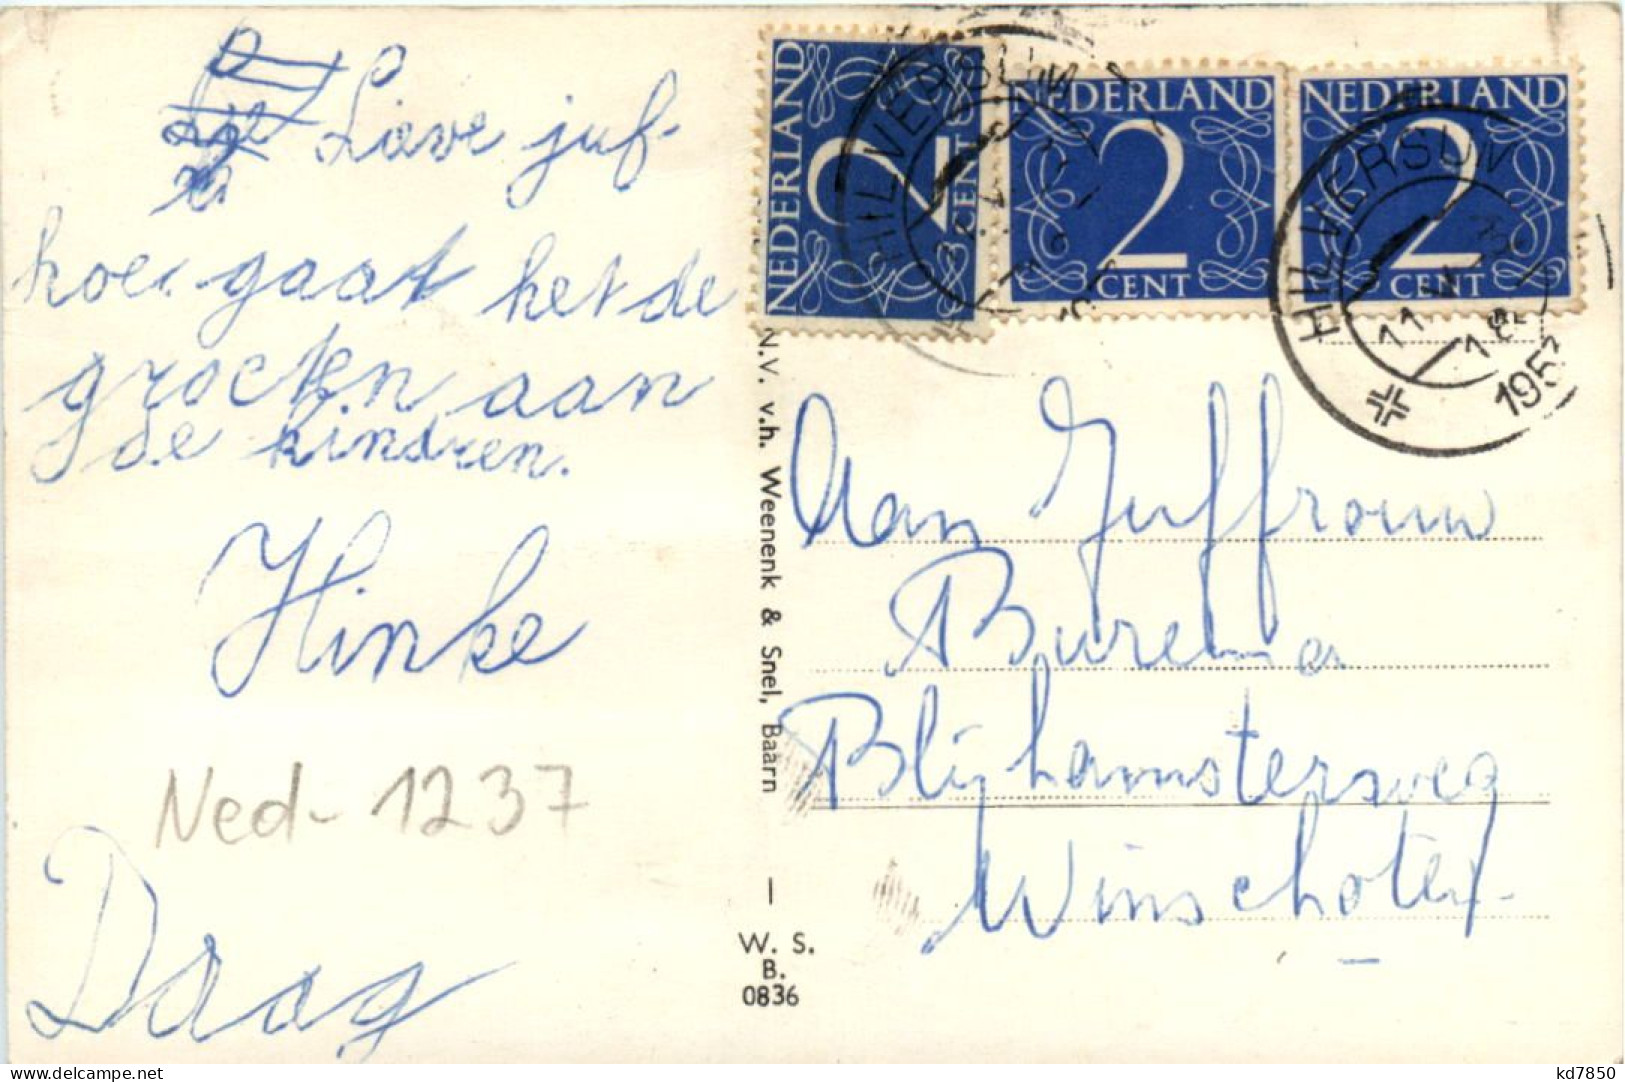 Lieve juf-
hoe gaat het de
groeten aan
de kindren.
Hinke
Ned- 1237
Daag
N.V. v.h. Weenenk & Snel, Baarn —
W. S.
B.
0836
NEDERLAND
2
CENT
NEDERLAND
2
CENT
NEDERLAND
2
CENT
HILVERSUM
HILVERSUM
11
195
Aan Juffrouw
Burema
Blijhamsterweg
Winschoten.
delcampe.net
kd7850